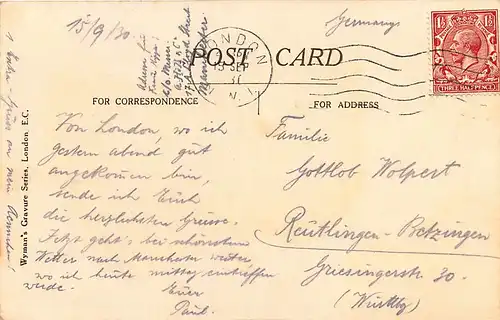 15/9/30.
Germany
LONDON
15 SEP
POST CARD
THREE HALFPENCE
FOR CORRESPONDENCE
FOR ADDRESS
Von London, wo ich
gestern abend gut
angekommen bin,
sende ich Euch
die herzlichsten Grüsse.
Jetzt geht's bei schönstem
Wetter nach Manchester weiter
wo ich heute mittag eintreffen
werde.
Euer
Paul.
Familie
Gottlob Wolpert
Reutlingen-Betzingen
Griesingerstr 30.
(Württbg)
Adresse für
c/o Messrs
Manchester.
1 Extra-Gruss an mein
Wyman's Gravure Series, London E.C.